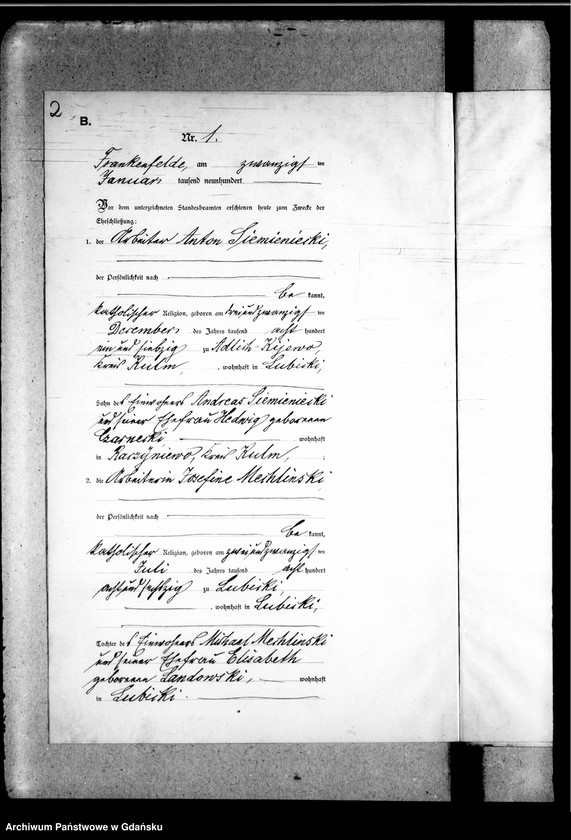 2
B.
Nr. 1.
Frankenfelde, am zwanzigsten
Januar tausend neunhundert
Vor dem unterzeichneten Standesbeamten erschienen heute zum Zwecke der
Eheschließung:
1. der Arbeiter Anton Siemieniecki,
der Persönlichkeit nach
be kannt,
katholischer Religion, geboren am dreiundzwanzigsten
December des Jahres tausend acht hundert
ein und siebzig zu Adlich-Kijewo,
Kreis Kulm, , wohnhaft in Lubicki,
Sohn des Einwohners Andreas Siemieniecki
und seiner Ehefrau Hedwig geborenen
Czarnecki, wohnhaft
in Raczyniewo, Kreis Kulm, ;
2. die Arbeiterin Josefine Mechlinski
der Persönlichkeit nach
be kannt,
katholischer Religion, geboren am zweiundzwanzigsten
Juli des Jahres tausend acht hundert
achtundsechzig zu Lubicki,
, wohnhaft in Lubicki,
Tochter des Einwohners Michael Mechlinski
und seiner Ehefrau Elisabeth
geborenen Landowski, wohnhaft
in Lubicki.
Archiwum Państwowe w Gdańsku